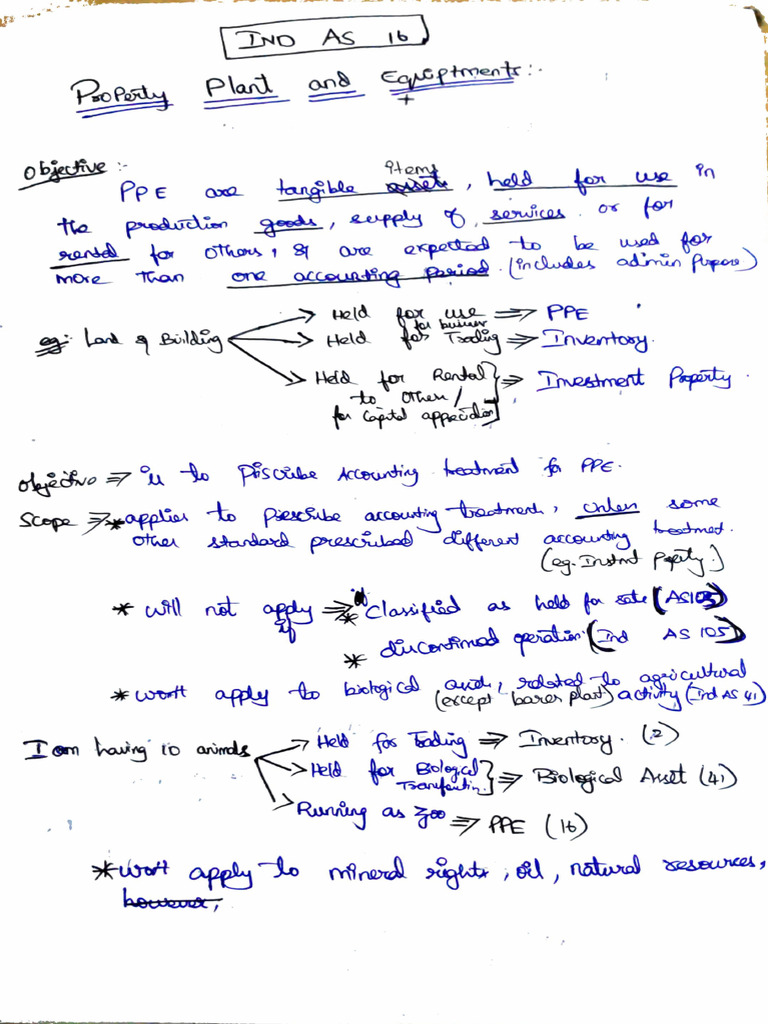 IND AS 16
Property Plant and Equiptments:-
Objective :-
items
PPE are tangible assets, held for use in
the production goods, supply of services or for
rental for others, & are expected to be used for
more than one accounting period. (includes admin purpose)
eg: Land & Building
Held for use ⇒ PPE
for business
Held for Trading ⇒ Inventory.
Held for Rental
to others /
for capital appreciation
⇒ Investment Property.
Objective ⇒ is to Priscribe Accounting treatment for PPE.
Scope ⇒ * applies to prescribe accounting treatment, unless some
other standard prescribed different accounting treatment.
(eg. Property.)
* will not apply if ⇒ * Classified as held for sale (AS105)
* discontinued operation (Ind AS 105)
* won't apply to biological related to agricultural
(except barer plant) activity (Ind AS 41)
I am having 10 animals
Held for Trading ⇒ Inventory. (2)
Held for Biological
⇒ Biological Asset (41)
Running as zoo ⇒ PPE (16)
* won't apply to mineral rights, oil, natural resources,
however,